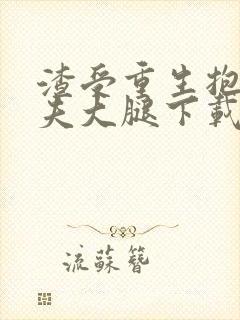 渣受重生抱
夫大腿下载
流蘇簪